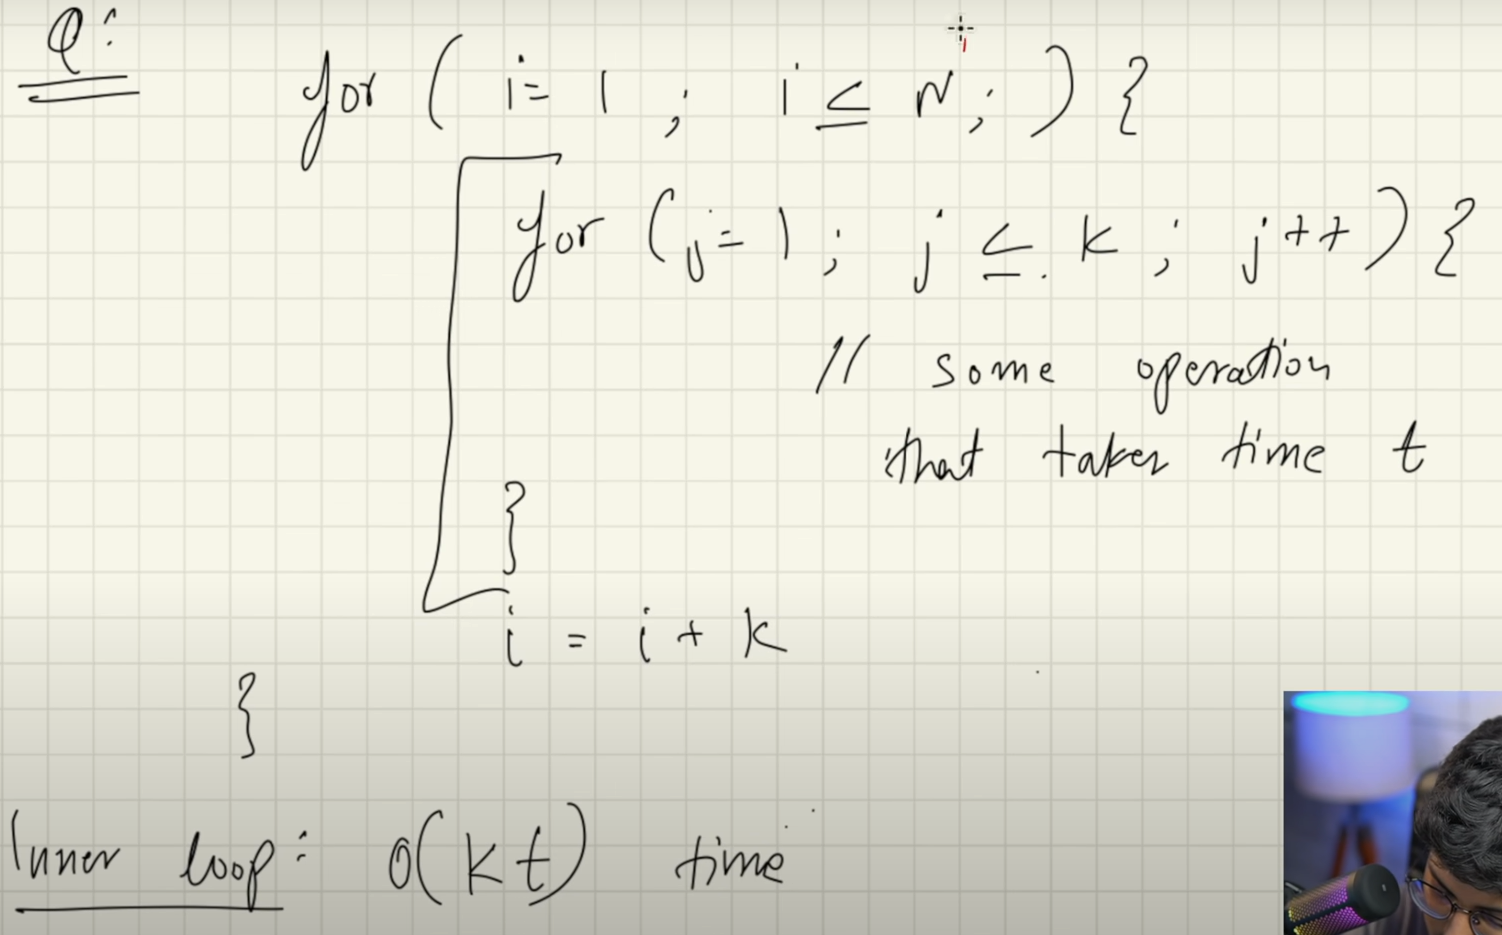 Q:
for ( i = 1 ; i ≤ N ; ) {
for ( j = 1 ; j ≤ k ; j++ ) {
// some operation
that takes time t
}
i = i + k
}
Inner loop : O( k t ) time